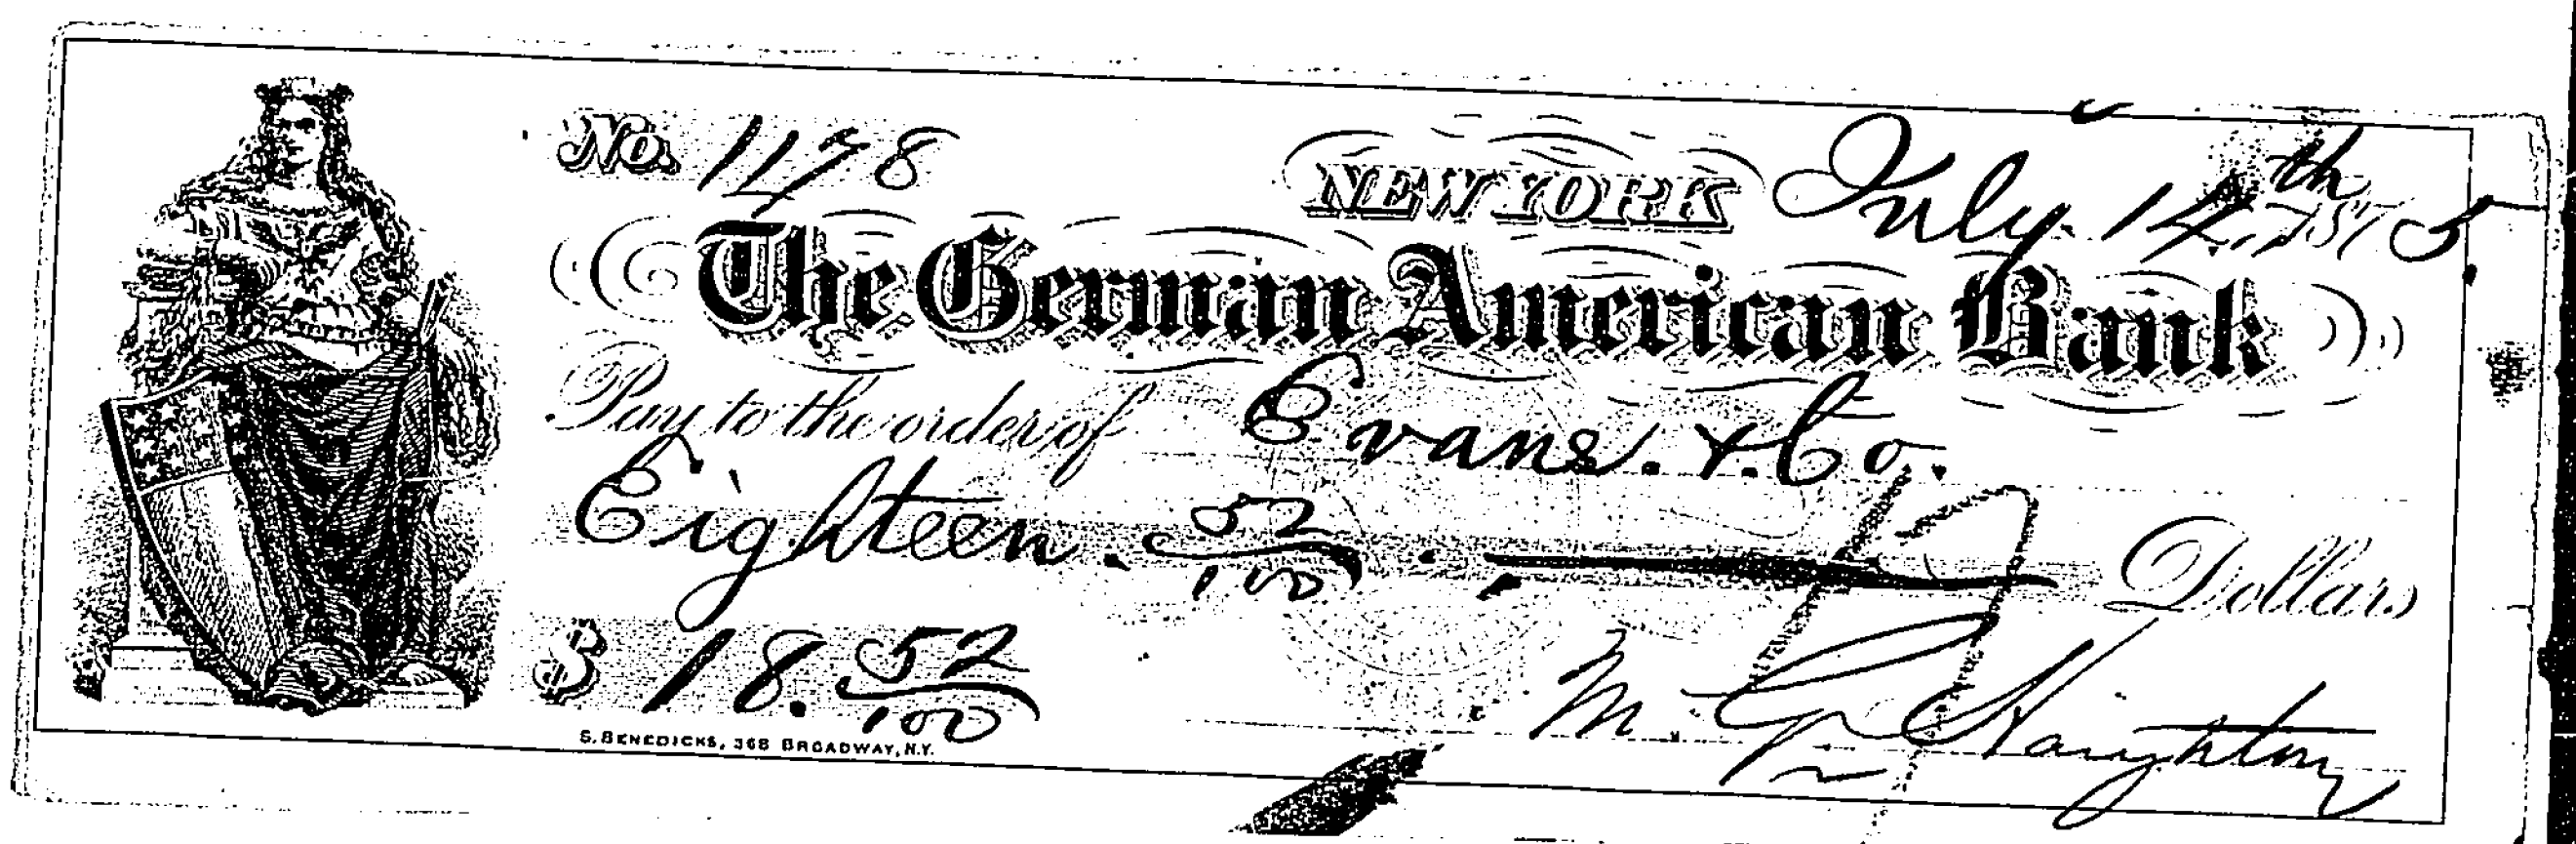 No. 1178
NEW YORK July. 14th. 1875
The German American Bank
Pay to the order of Evans. & Co.
Eighteen. 52/100 Dollars
$ 18. 52/100
M. G. Haughton
S. BENEDICKS, 368 BROADWAY, N.Y.